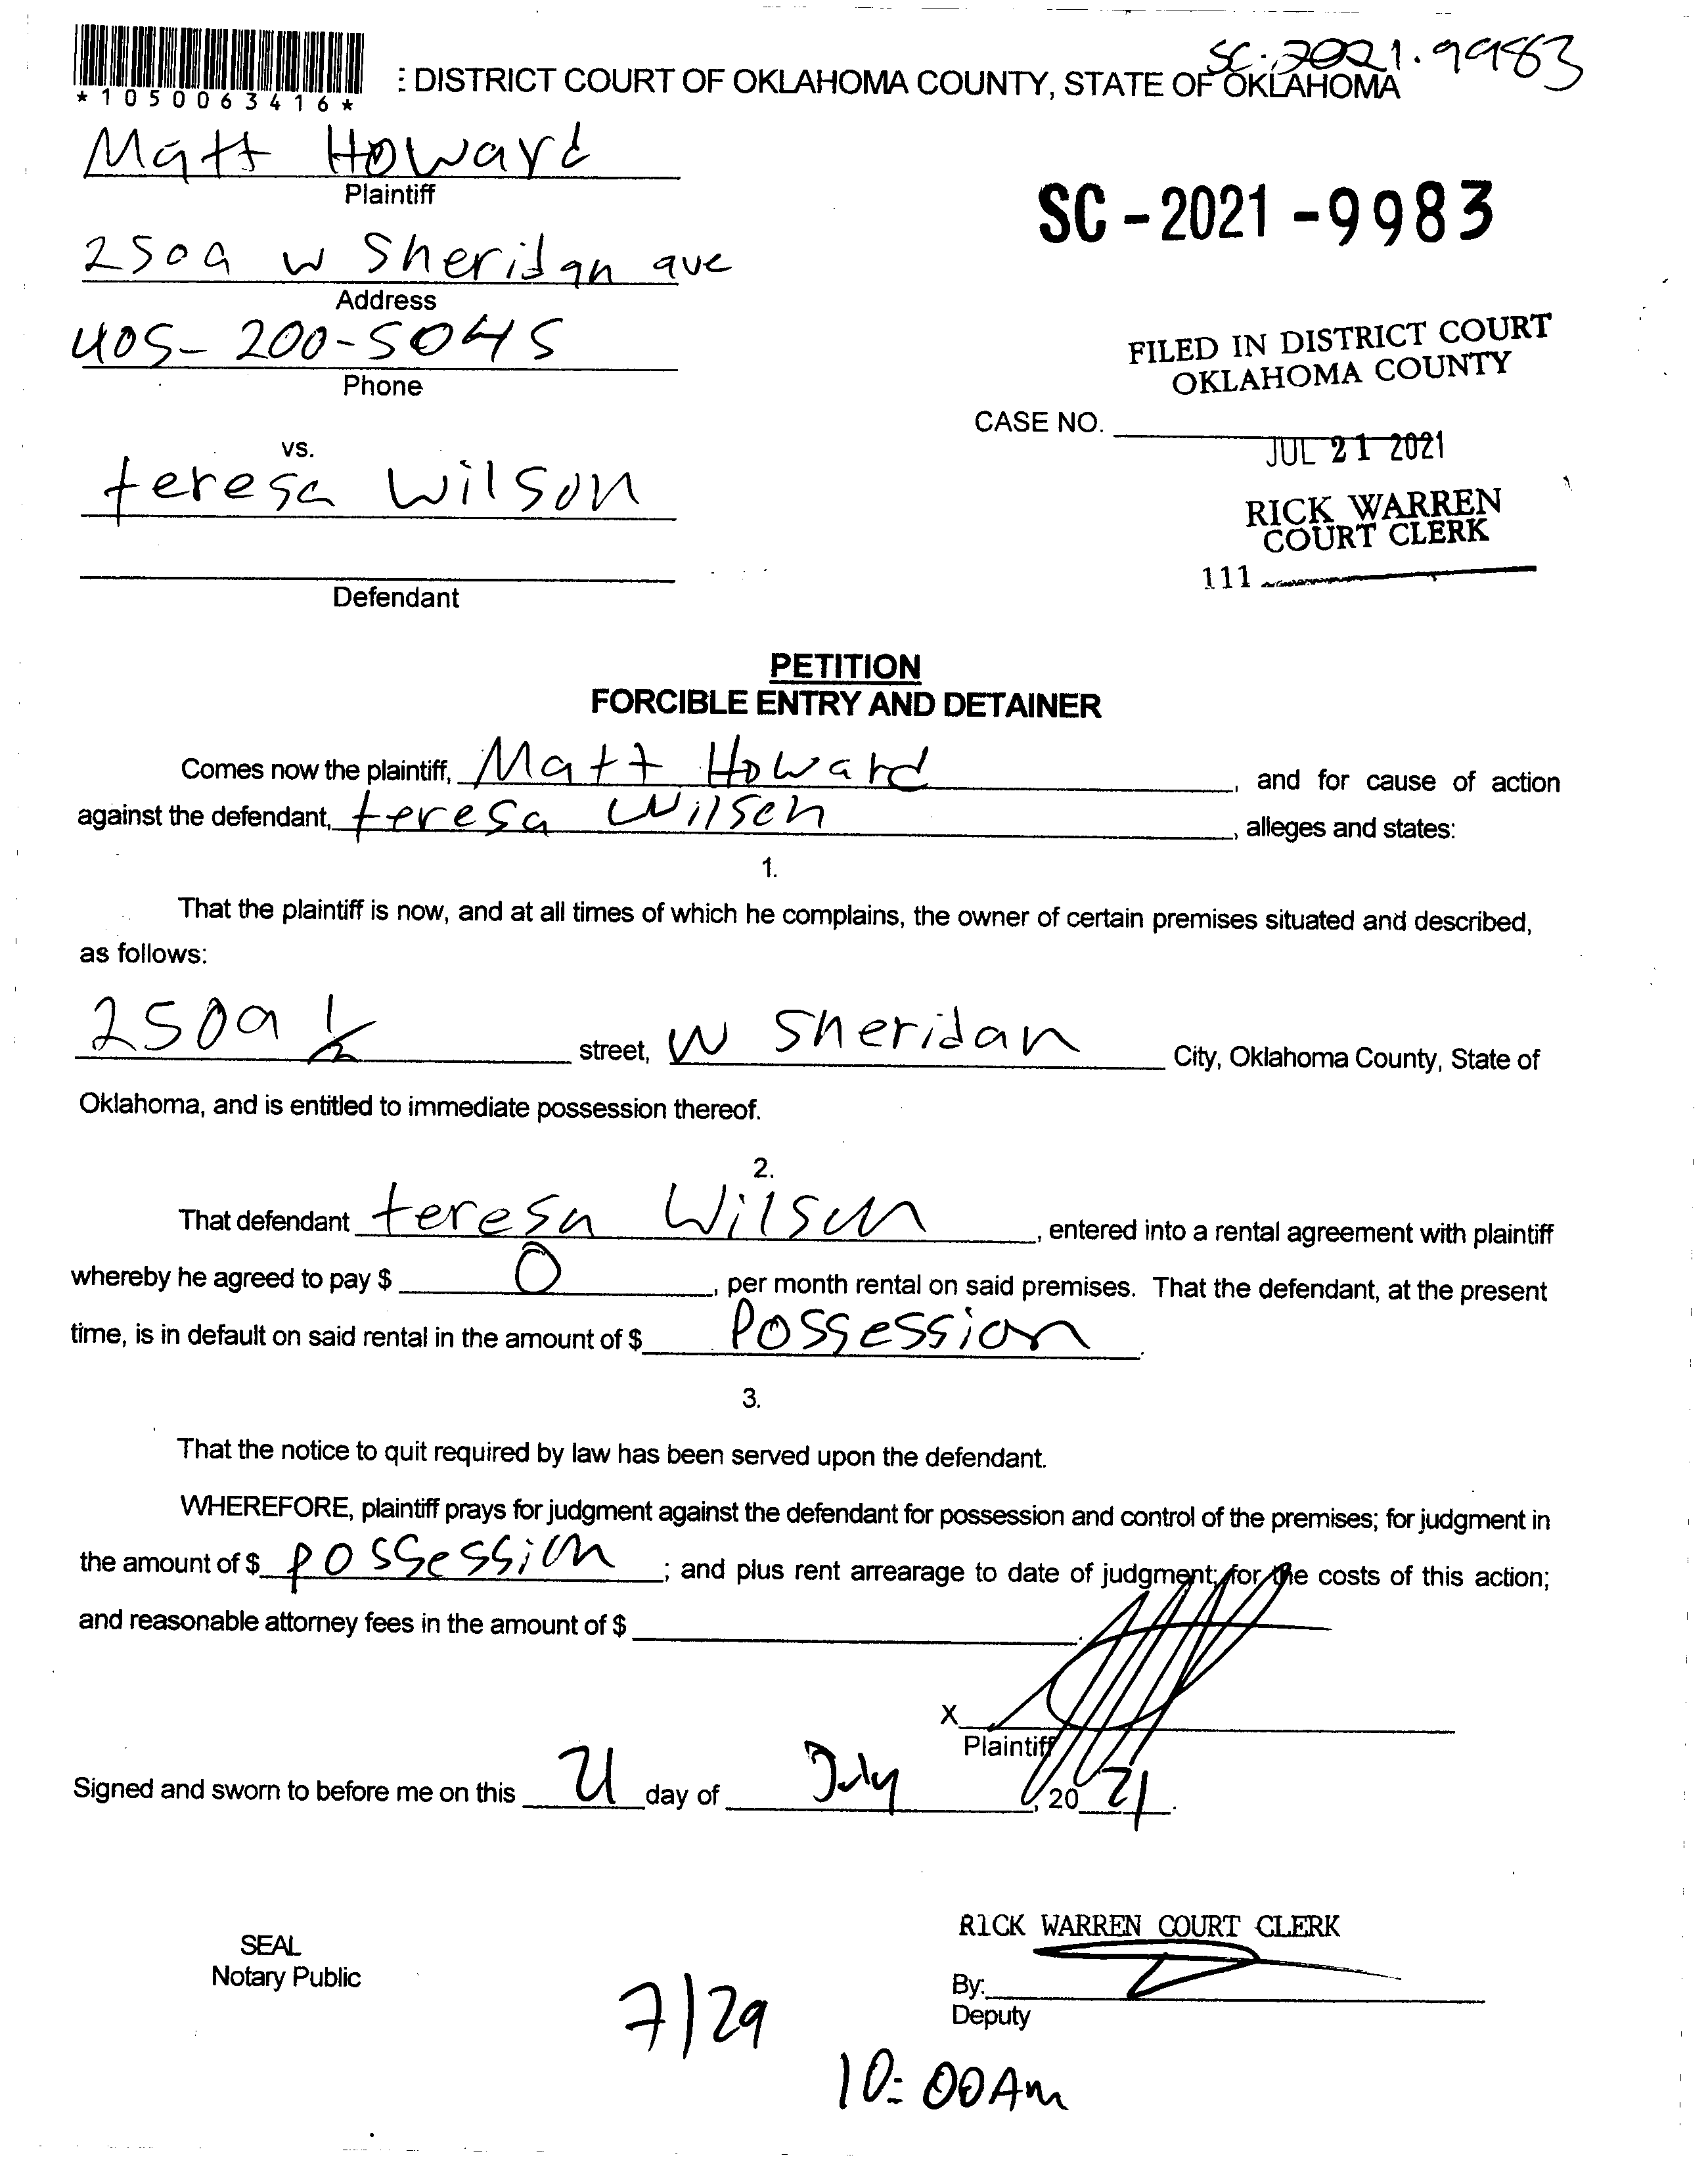 SC-2021-9983
*1050063416*
: DISTRICT COURT OF OKLAHOMA COUNTY, STATE OF OKLAHOMA
Matt Howard
Plaintiff
SC-2021-9983
2509 W Sheridan ave
Address
405-200-5045
Phone
FILED IN DISTRICT COURT
OKLAHOMA COUNTY
CASE NO.
JUL 21 2021
vs.
teresa Wilson
RICK WARREN
COURT CLERK
111
Defendant
PETITION
FORCIBLE ENTRY AND DETAINER
Comes now the plaintiff, Matt Howard, and for cause of action
against the defendant, teresa Wilson, alleges and states:
1.
That the plaintiff is now, and at all times of which he complains, the owner of certain premises situated and described,
as follows:
2509 1/2 street, W Sheridan City, Oklahoma County, State of
Oklahoma, and is entitled to immediate possession thereof.
2.
That defendant teresa Wilson, entered into a rental agreement with plaintiff
whereby he agreed to pay $ 0, per month rental on said premises. That the defendant, at the present
time, is in default on said rental in the amount of $ Possession.
3.
That the notice to quit required by law has been served upon the defendant.
WHEREFORE, plaintiff prays for judgment against the defendant for possession and control of the premises; for judgment in
the amount of $ possession; and plus rent arrearage to date of judgment; for the costs of this action;
and reasonable attorney fees in the amount of $
X
Plaintiff
Signed and sworn to before me on this 21 day of July, 20 21.
RICK WARREN COURT CLERK
SEAL
Notary Public
By:
Deputy
7/29
10:00Am